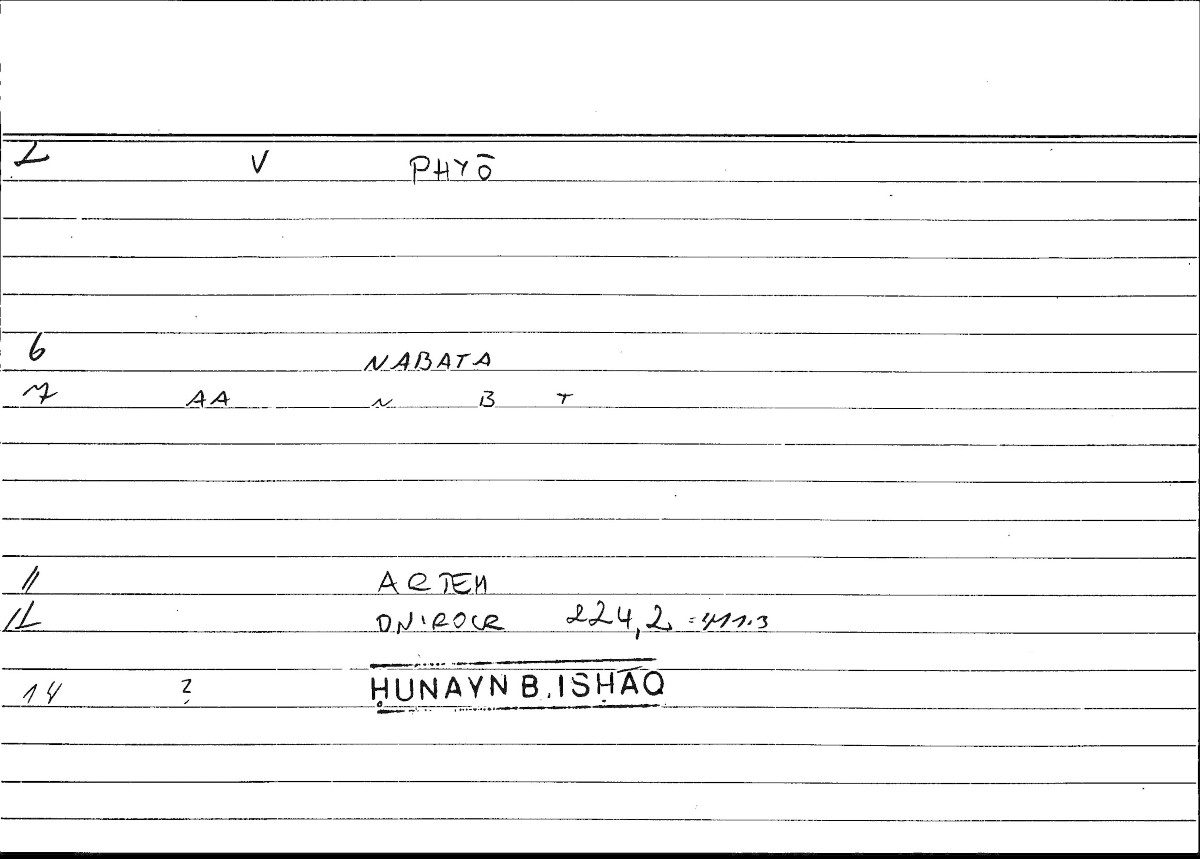 2 V PHYŌ
6 NABATA
7 AA N B T
11 ARTEM
12 ONIROCR 224,2 = 411.3
14 ? ḤUNAYN B. ISḤĀQ